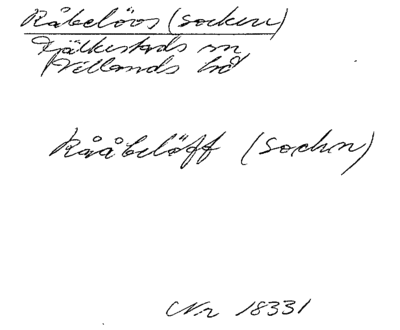 Råbelövs (socken)
Fjälkestads sn
Villands hd
Rååbelöff (Sochn)
Nr 18331